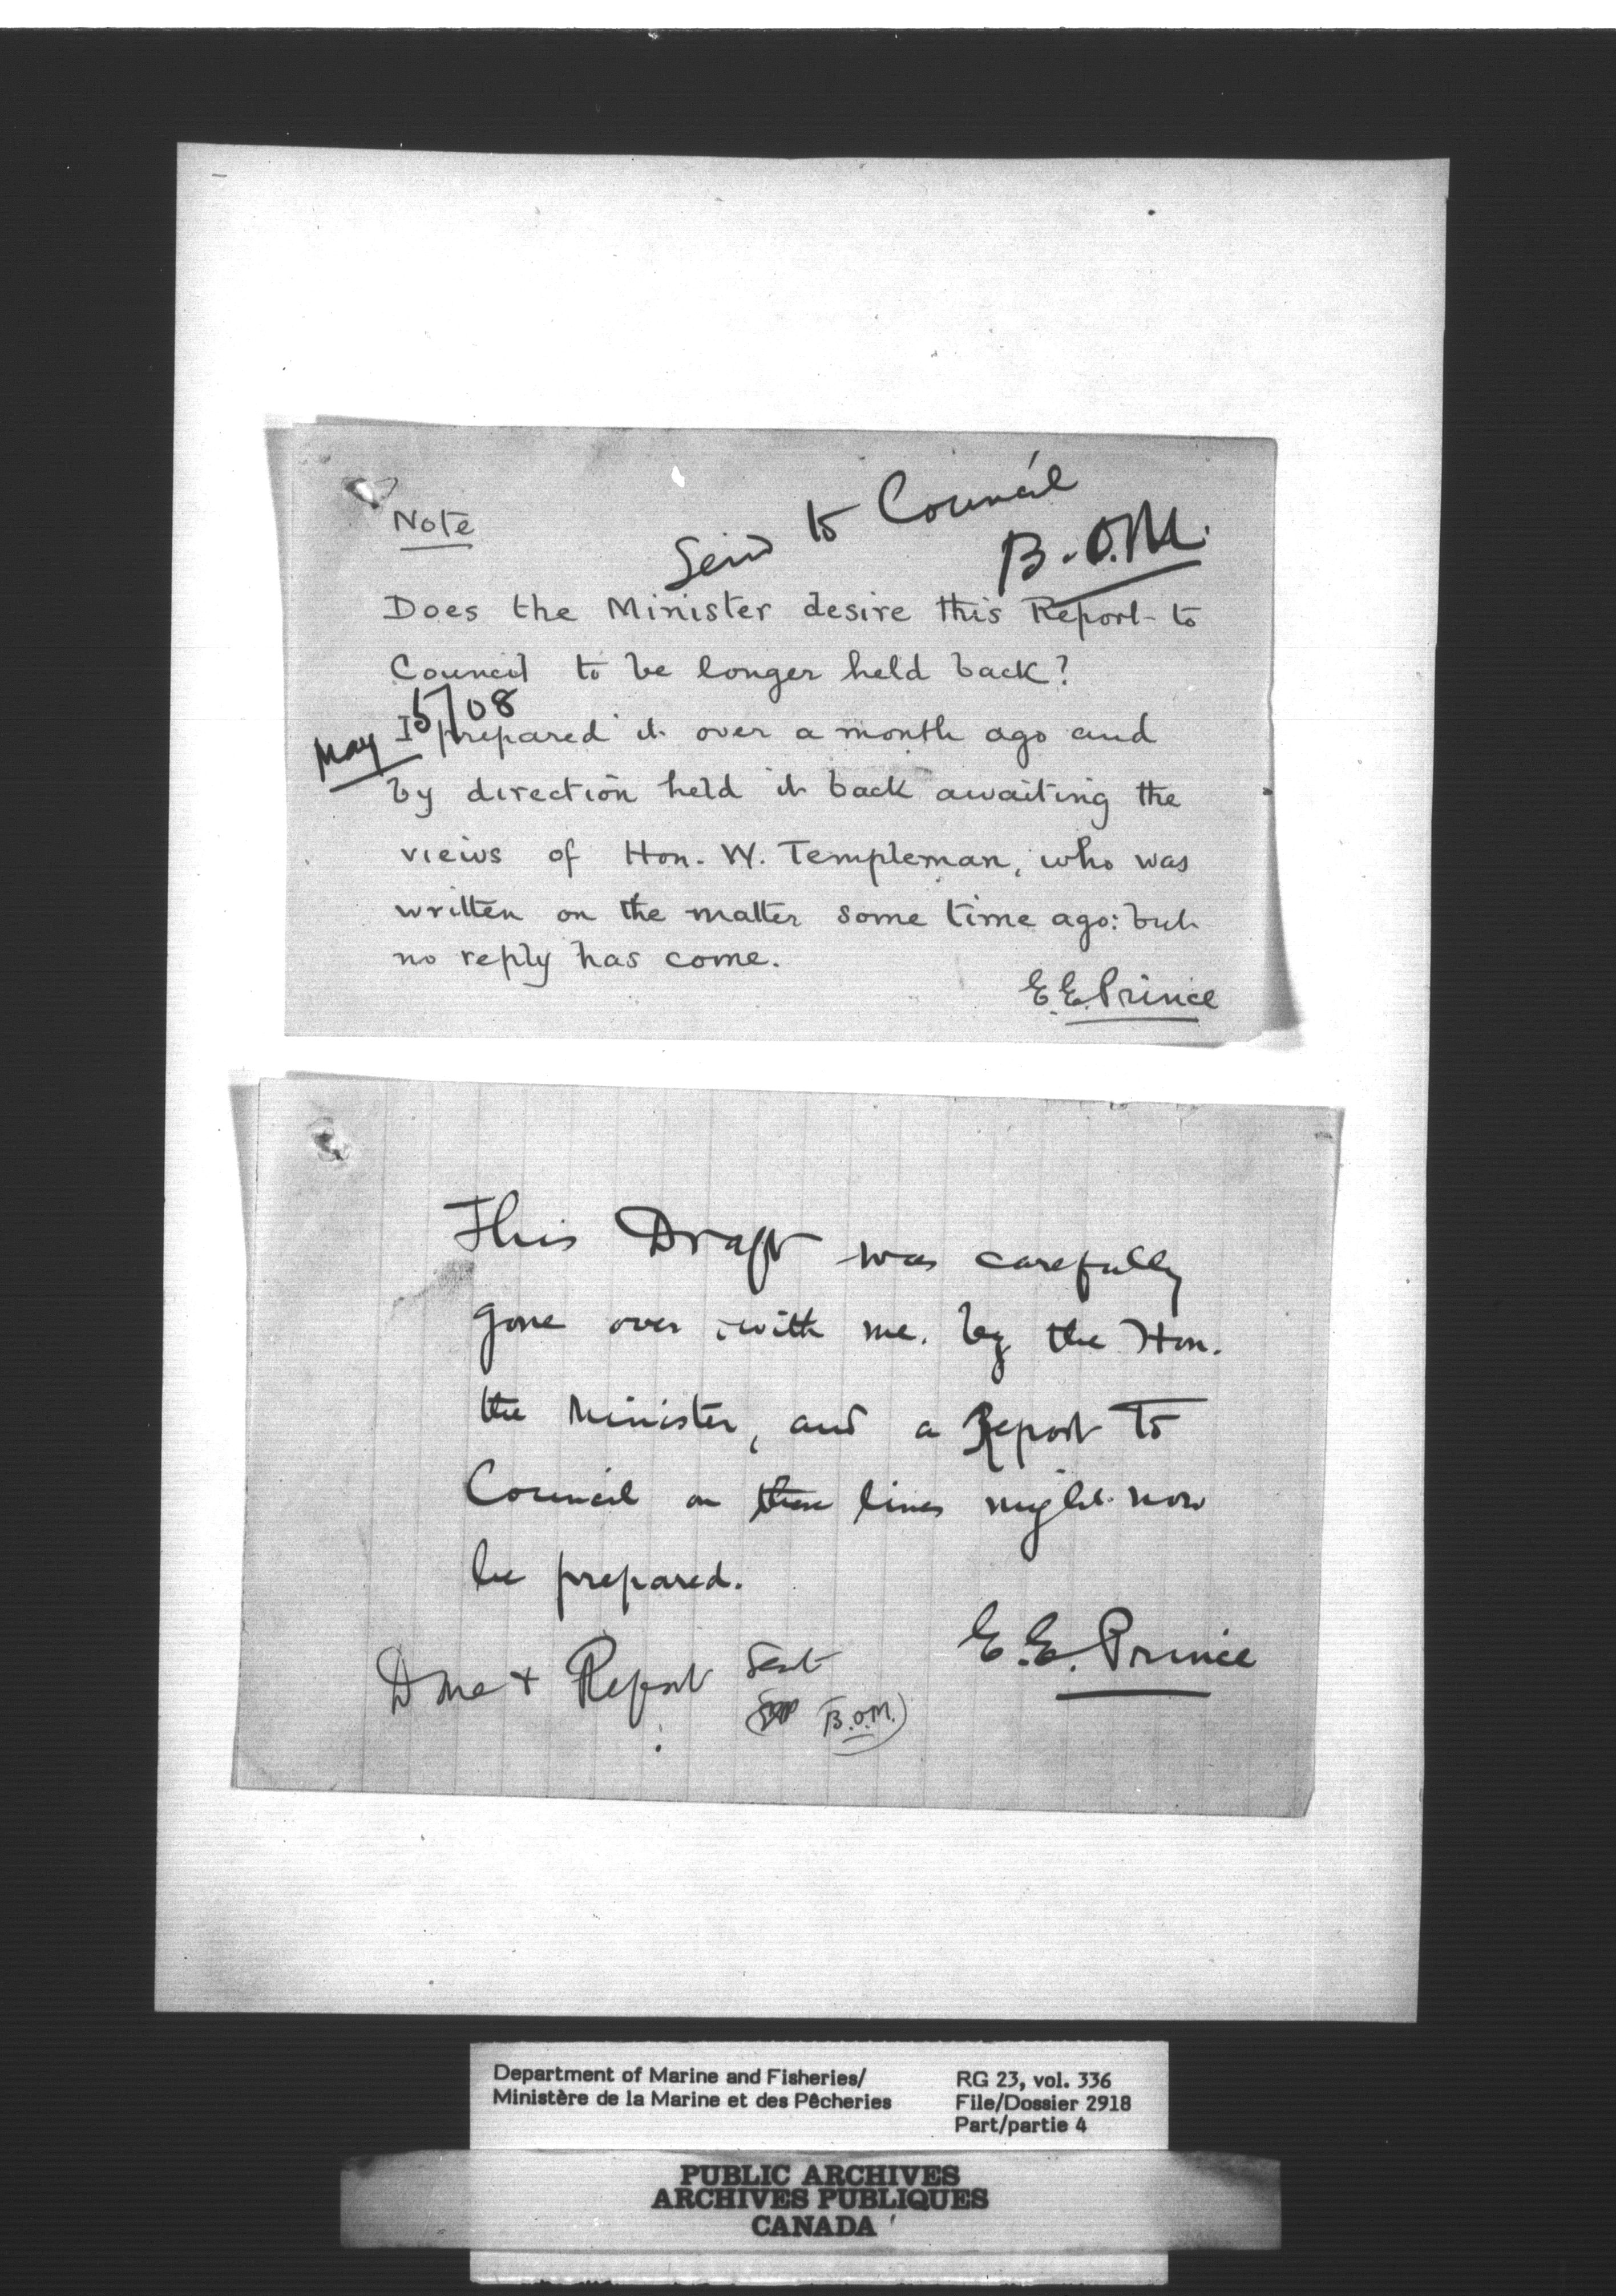 Note
Send to Council
B.O.M.
Does the Minister desire this Report to
Council to be longer held back?
May 5/08
I prepared it over a month ago and
by direction held it back awaiting the
views of Hon. W. Templeman, who was
written on the matter some time ago: but
no reply has come.
E.E. Prince
This Draft was carefully
gone over with me. by the Hon.
the Minister, and a Report to
Council on these lines might now
be prepared.
E.E. Prince
Done + Report sent
B.O.M.)
Department of Marine and Fisheries/
Ministère de la Marine et des Pêcheries
RG 23, vol. 336
File/Dossier 2918
Part/partie 4
PUBLIC ARCHIVES
ARCHIVES PUBLIQUES
CANADA